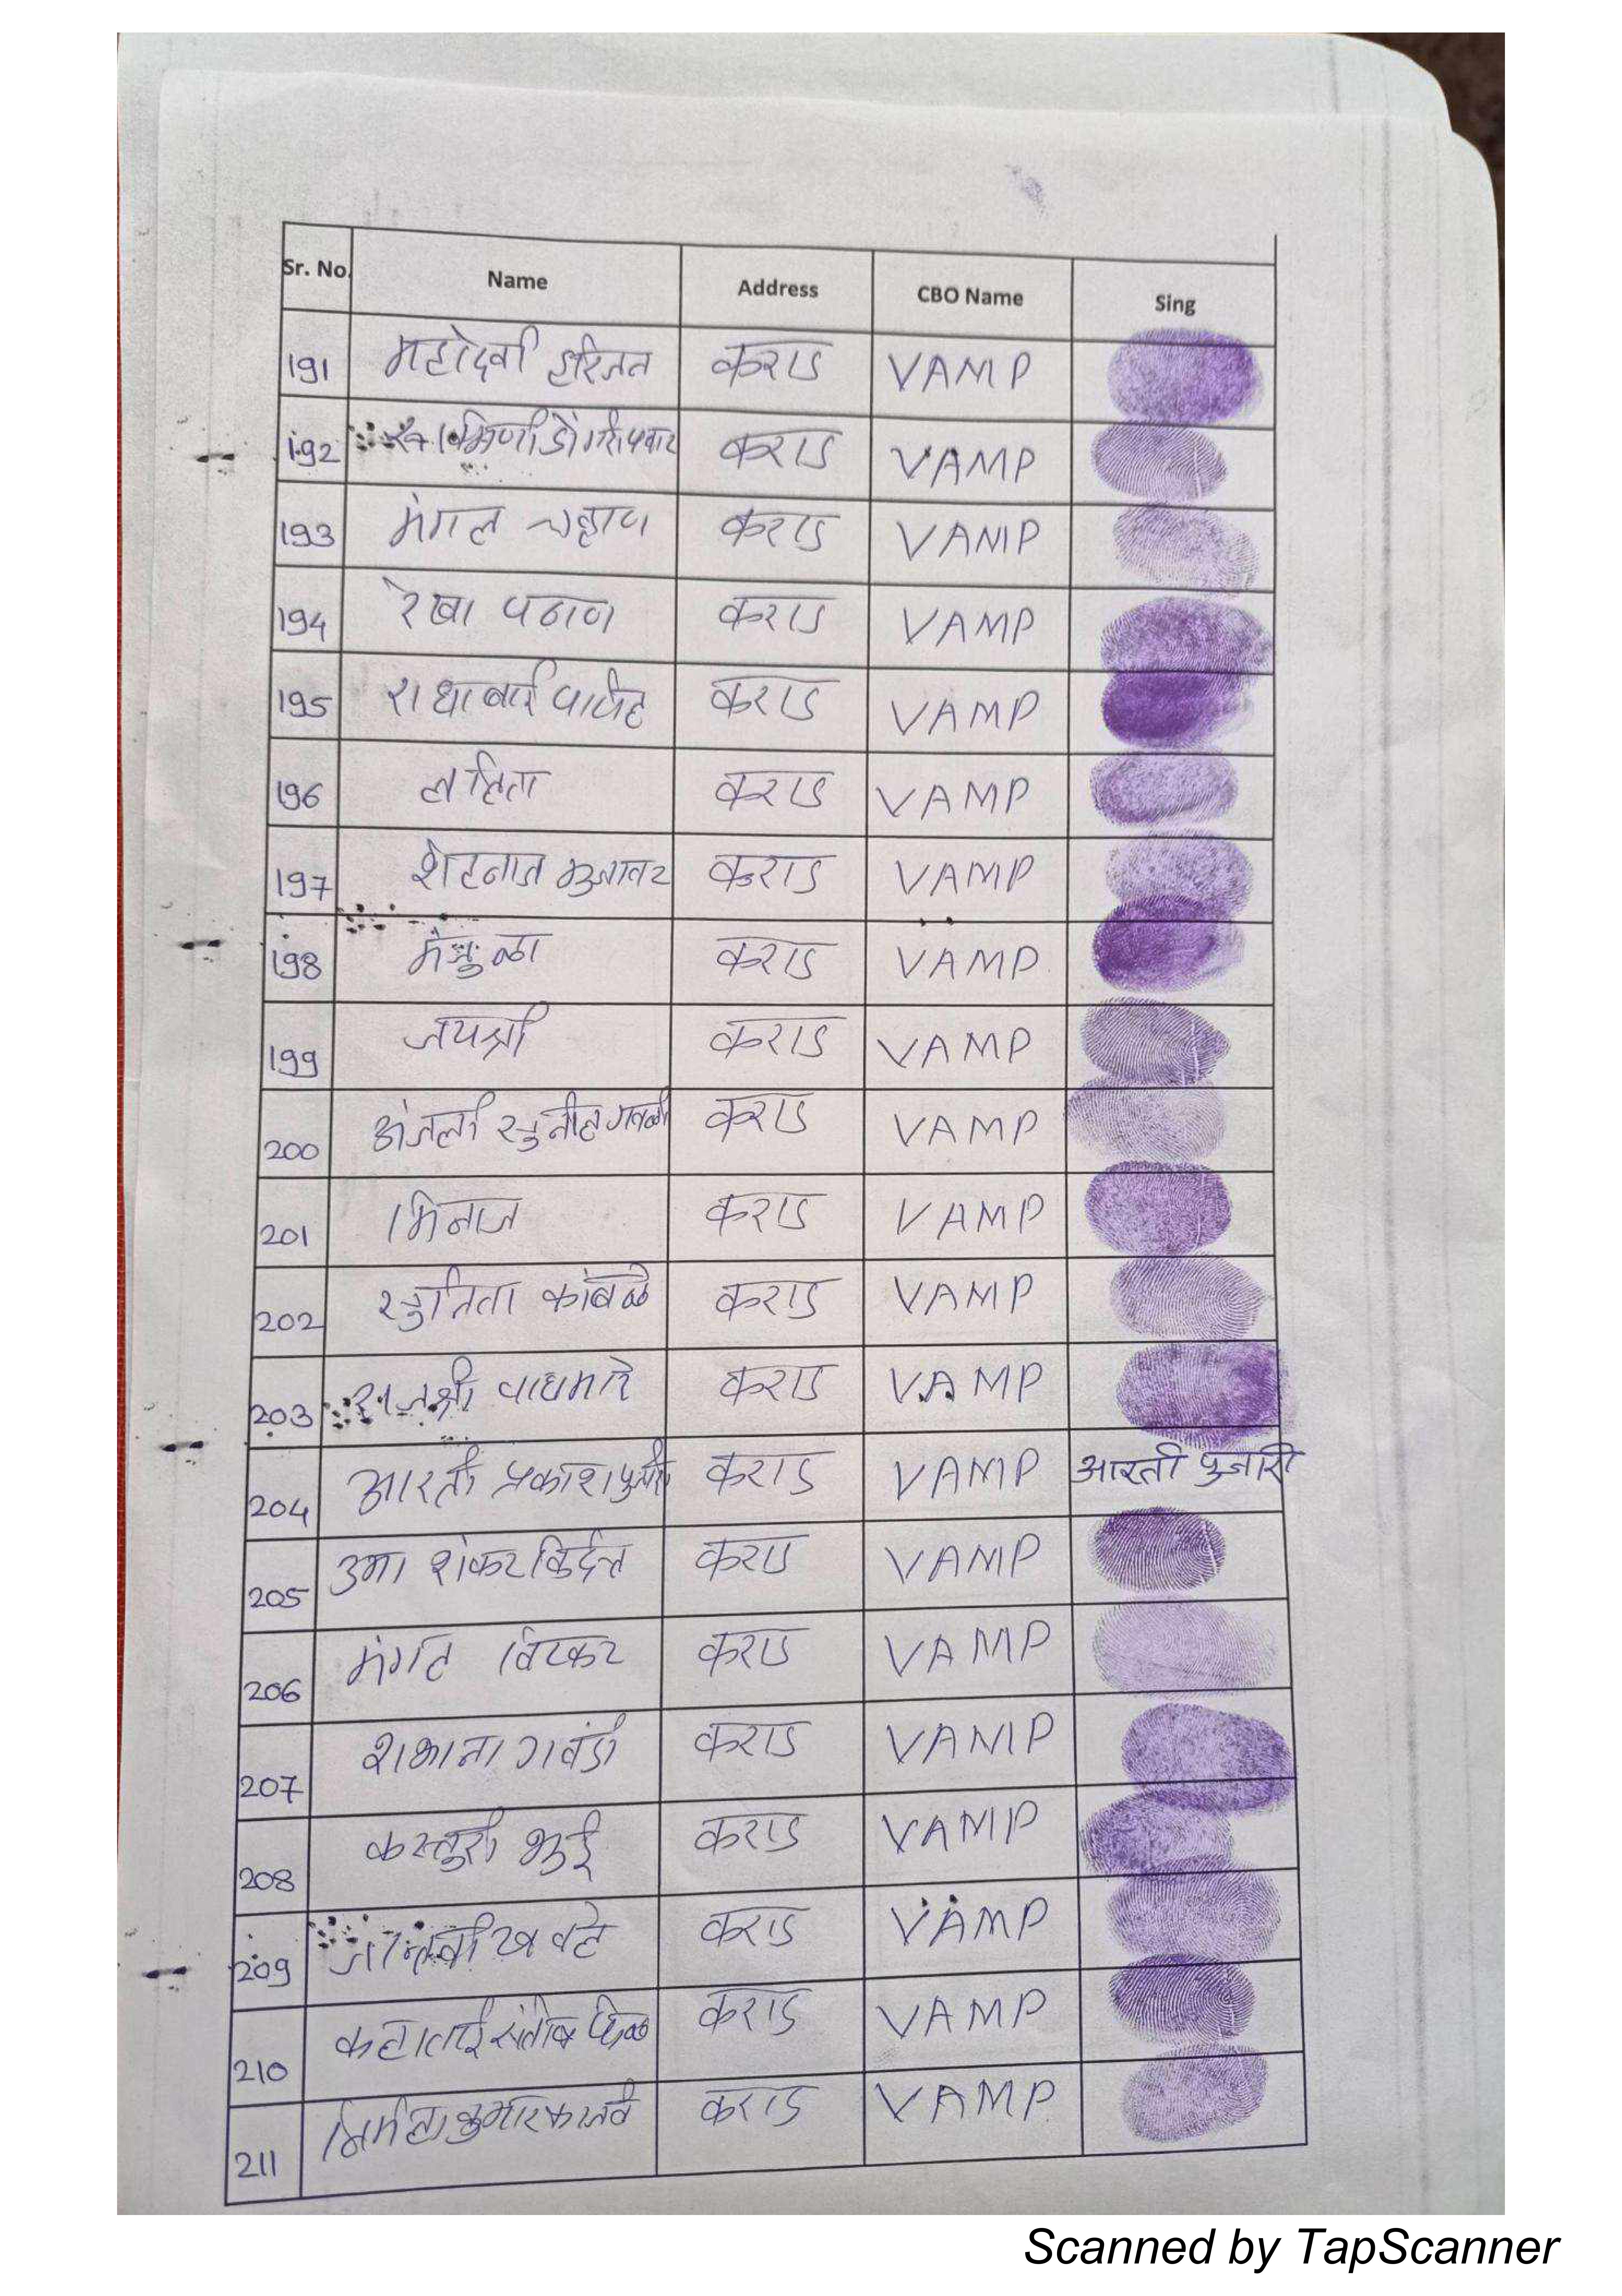 Sr. No. Name Address CBO Name Sing
191 महादेवी हरिजन कराड VAMP
192 कराड VAMP
193 मंगल चव्हाण कराड VAMP
194 रेखा पठाण कराड VAMP
195 राधाबाई कराड VAMP
196 ललिता कराड VAMP
197 कराड VAMP
198 मंजुळा कराड VAMP
199 जयश्री कराड VAMP
200 अंजली सुनील गवळी कराड VAMP
201 मिनाज कराड VAMP
202 सुनिता कांबळे कराड VAMP
203 राजश्री वाघमारे कराड VAMP
204 आरती प्रकाश पुजारी कराड VAMP आरती पुजारी
205 उमा शंकर कराड VAMP
206 मंगल विटकर कराड VAMP
207 गवंडी कराड VAMP
208 कस्तुरी भुई कराड VAMP
209 कराड VAMP
210 संतोष कराड VAMP
211 निर्मला कुमार कराड VAMP
Scanned by TapScanner